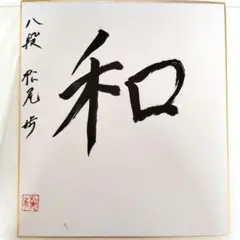 和
八段 松尾歩